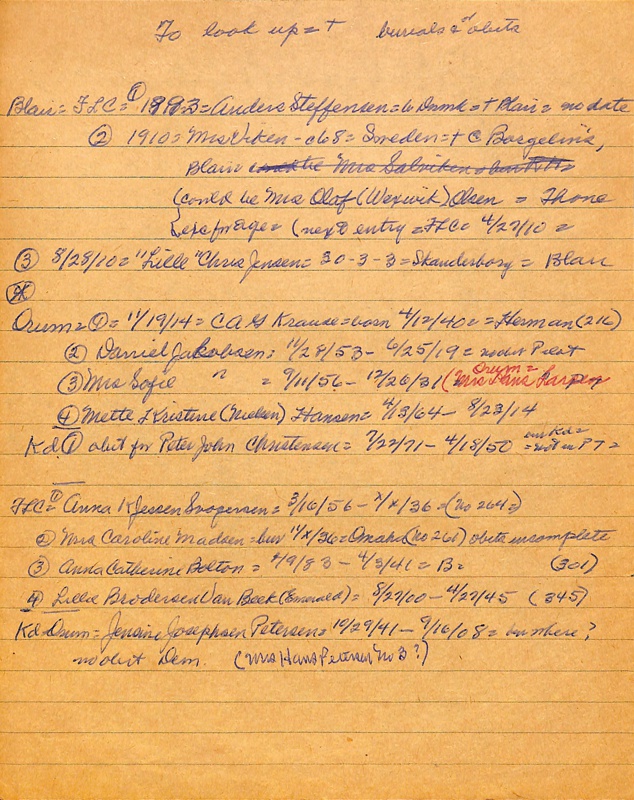 To look up = + burials & obits
Blair = FLC = ① 1893 = Anders Steffensen = b Dnmk = + Blair = no date
② 1910 = Mrs Viken - ch 8 = Sweden = + C Borgelins,
Blair could be Mrs
(could be Mrs Olaf (Wexwik) Olsen = Thone
(next entry = FLC = 4/27/10 =
③ 8/28/10 = "Lille" Chris Jensen = 30-3-3 = Skanderborg = Blair
Orum = ① = 11/19/14 = C A G Krause = born 4/12/40 = = Herman (216)
② Daniel Jakobsen = 11/28/53 - 6/25/19 = not in Pilot
③ Mrs Sofie " = 9/11/56 - 12/26/31 (Orum =
Mrs Hans Larsen
④ Mette Kristine (Nielsen) Hansen = 4/13/64 - 8/23/14
Kd ① obit for Peter John Christensen = 7/22/71 - 4/18/50 = not in PT =
FLC = ① Anna K Jessen Svogersen = 3/16/56 - 7/x/36 = (no 264 =)
② Mrs Caroline Madsen = bur 11/x/36 = Omaha (no 261) obits incomplete
③ Anna Catherine Bolton = 4/9/83 - 4/3/41 = B = (301)
④ Lillie Brodersen Van Beek (Emerald) = 8/27/00 - 4/27/45 (345)
Kd Orum = Jensine Josephsen Petersen = 10/29/41 - 9/16/08 = bur where?
no obit Dem. (Mrs Hans Petersen No 3?)